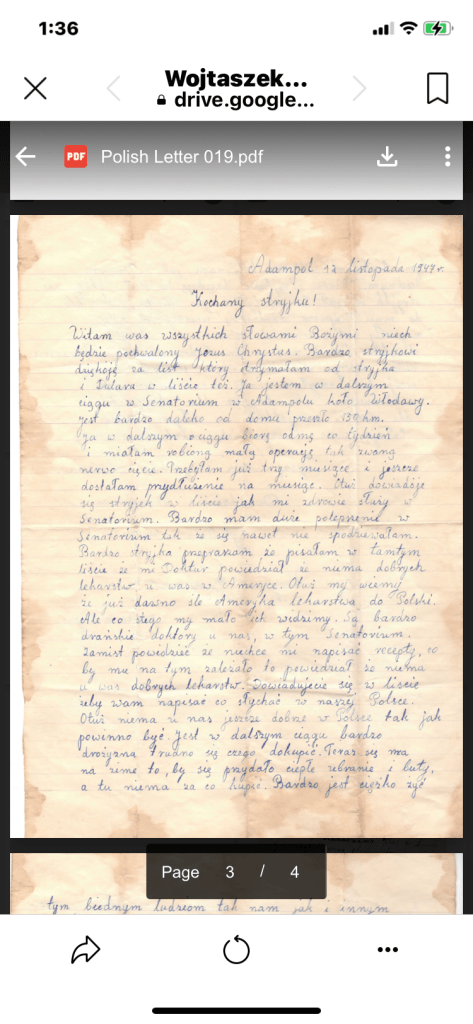 1:36
Wojtaszek...
drive.google...
PDF Polish Letter 019.pdf
Adampol 12 listopada 1947 r.
Kochany stryjku!
Witam was wszystkich słowami Bożymi niech
będzie pochwalony Jezus Chrystus. Bardzo stryjkowi
dziękuję za list który otrzymałam od stryjka
i Dolara w liście też. Ja jestem w dalszym
ciągu w Senatorium w Adampolu koło Włodawy.
Jest bardzo daleko od domu przeszło 130 km.
Ja w dalszym ciągu biorę odmę co tydzień
i miałam robioną małą operację tak zwaną
nerwo cięcie. Przebyłam już trzy miesiące i jeszcze
dostałam przydłużenie na miesiąc. Otuż dowiaduje
się stryjek w liście jak mi zdrowie służy w
Senatorium. Bardzo mam duże polepszenie w
Senatorium tak że się nawet nie spodziwałam.
Bardzo stryjka przepraszam że pisałam w tamtym
liście że mi Doktur powiedział że niema dobrych
lekarstw u was w Ameryce. Otuż my wiemy
że już dawno śle Ameryka lekarstwa do Polski.
Ale co stego my mało ich widzimy. Są bardzo
drańskie doktory u nas, w tym Senatorium.
Zamist powiedzieć że niechce mi napisać recepty, co
by mie na tym zależało to powiedział że niema
u was dobrych lekarstw. Dowiadujecie się w liście
żeby wam napisać co słychać w naszej Polsce.
Otuż niema u nas jeszcze dobrze w Polsce tak jak
powinno być. Jest w dalszym ciągu bardzo
drożyzna trudno się czego dokupić. Teraz się ma
na zime to, by się przydało ciepłe zebranie i buty,
a tu niema za co kupić. Bardzo jest ciężko żyć
Page 3 / 4
tym biednym ludziom tak nam jak i innym